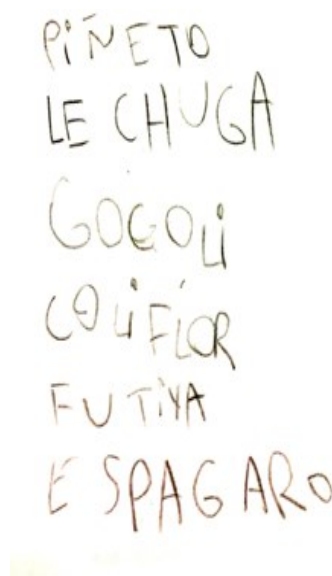 PIÑETO
LE CHUGA
GOGOLI
COLIFLOR
FUTIYA
E SPAGARO